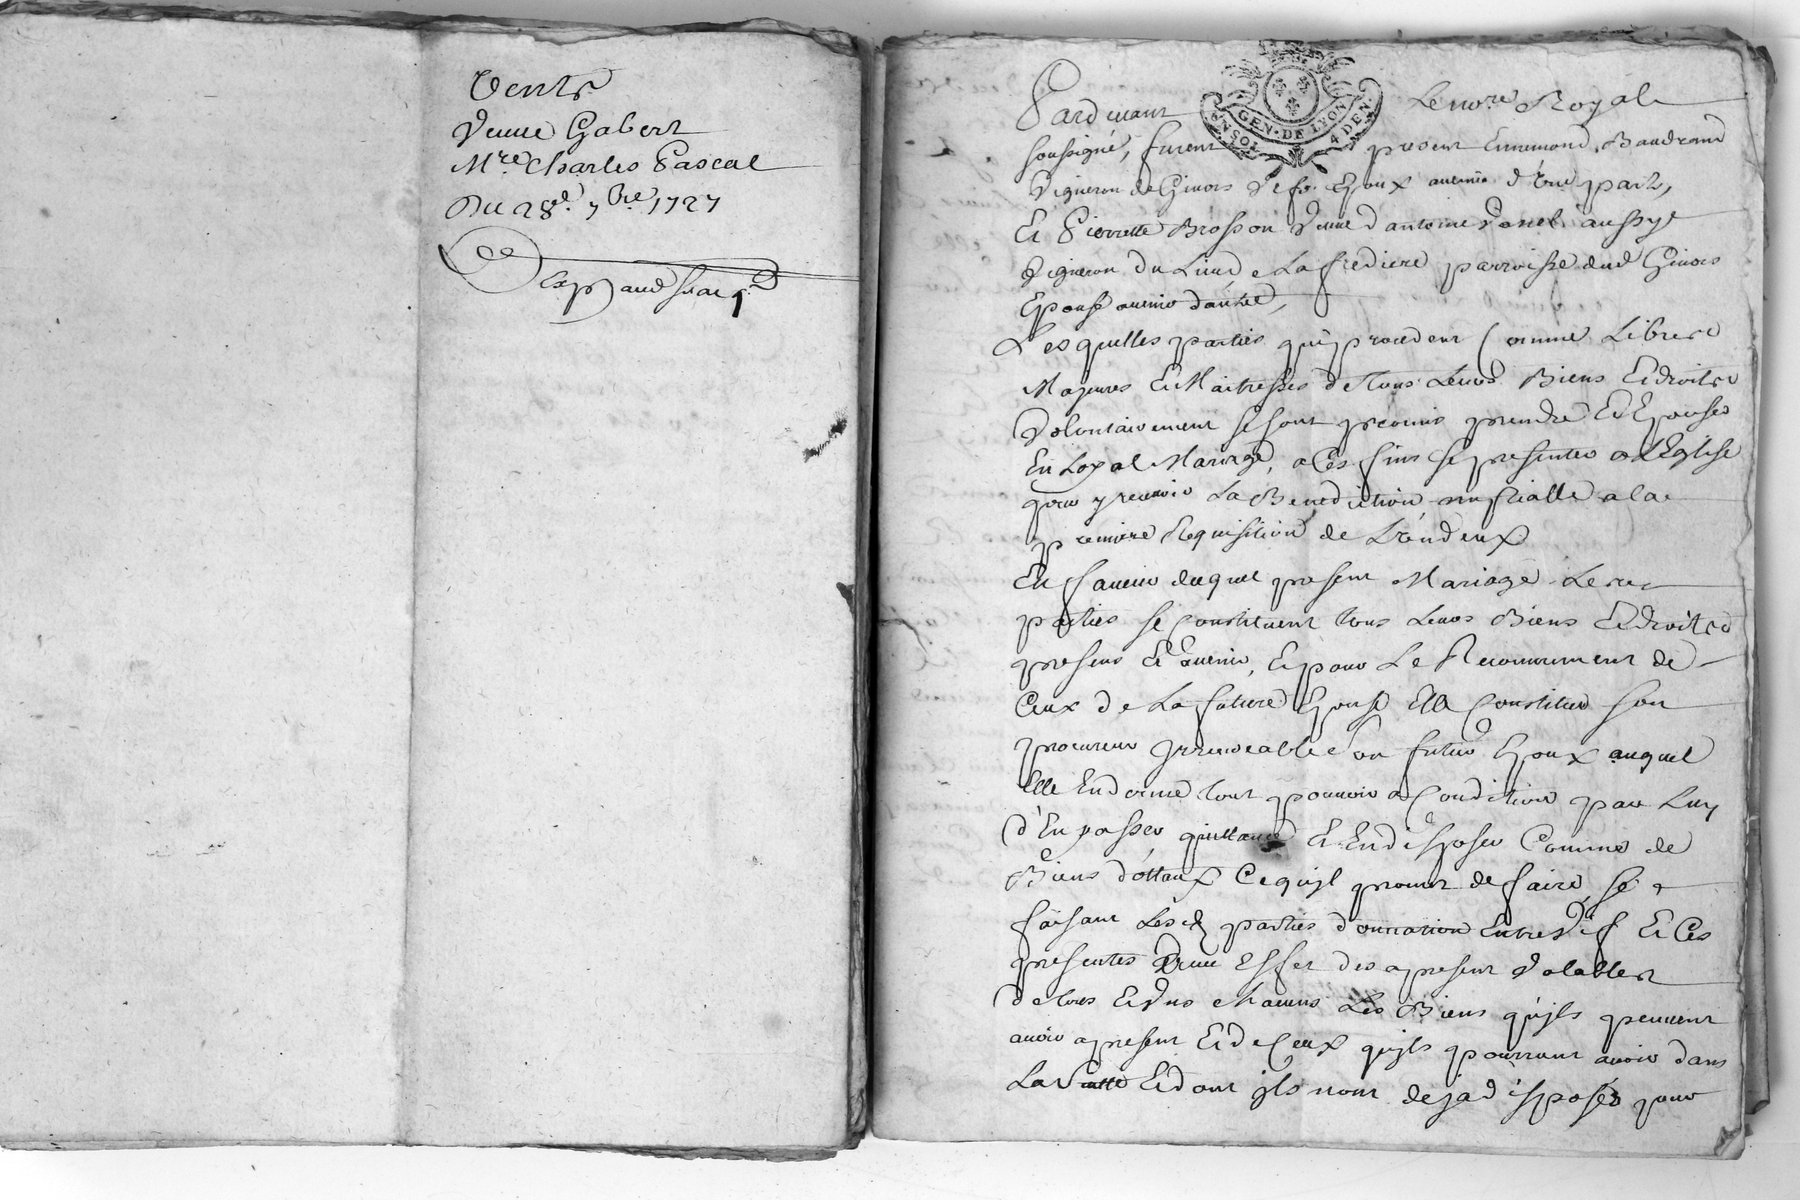 Vente
Veuve Gabert
Mre. Charles Pascal
Du 28e. 7bre. 1727
Expedi
Pardevant Le nore. Royal
GEN. DE LYON
4 DEN.
soussigné, furent present Ennemond Baudrand
Vigneron de Givors Vef Epoux avenir d'une part,
Et Pierrette Brosson Veuve d'antoine aussy
Vigneron du Lieu de La frediere parroisse dud Givors
Epouse avenir d'autre,
Lesquelles parties qui procedent Comme Libres
Majeures Et Maitresses de Tous Leurs Biens Et droits
Volontairement se sont promis prendre Et Epouser
En Loyal Mariage, a Ces fins se presenter a L'Eglise
pour y recevoir La Benediction nuptialle a la
premiere Requisition de L'un d'eux
En faveur duquel present Mariage Lesd
parties se Constituent tous Leurs Biens Et droits
presens Et avenir, Et pour Le Recouvrement de
Ceux de La future Epouse Elle Constitue son
procureur Irrevocable son futur Epoux auquel
Elle En donne tout pouvoir a Condition par Luy
d'En passer quittance Et En disposer Comme de
Biens dottaux Ce qu'jl promet de faire, se
faisant Lesd parties donnation Entre Vif Et Ces
presentes Prenne Effet des a present Valables
de tous Et Vns Chacuns Les Biens qu'jls peuvent
avoir a present Et de Ceux qu'jls pourront avoir dans
La Suitte Et dont jls n'ont deja disposés pour